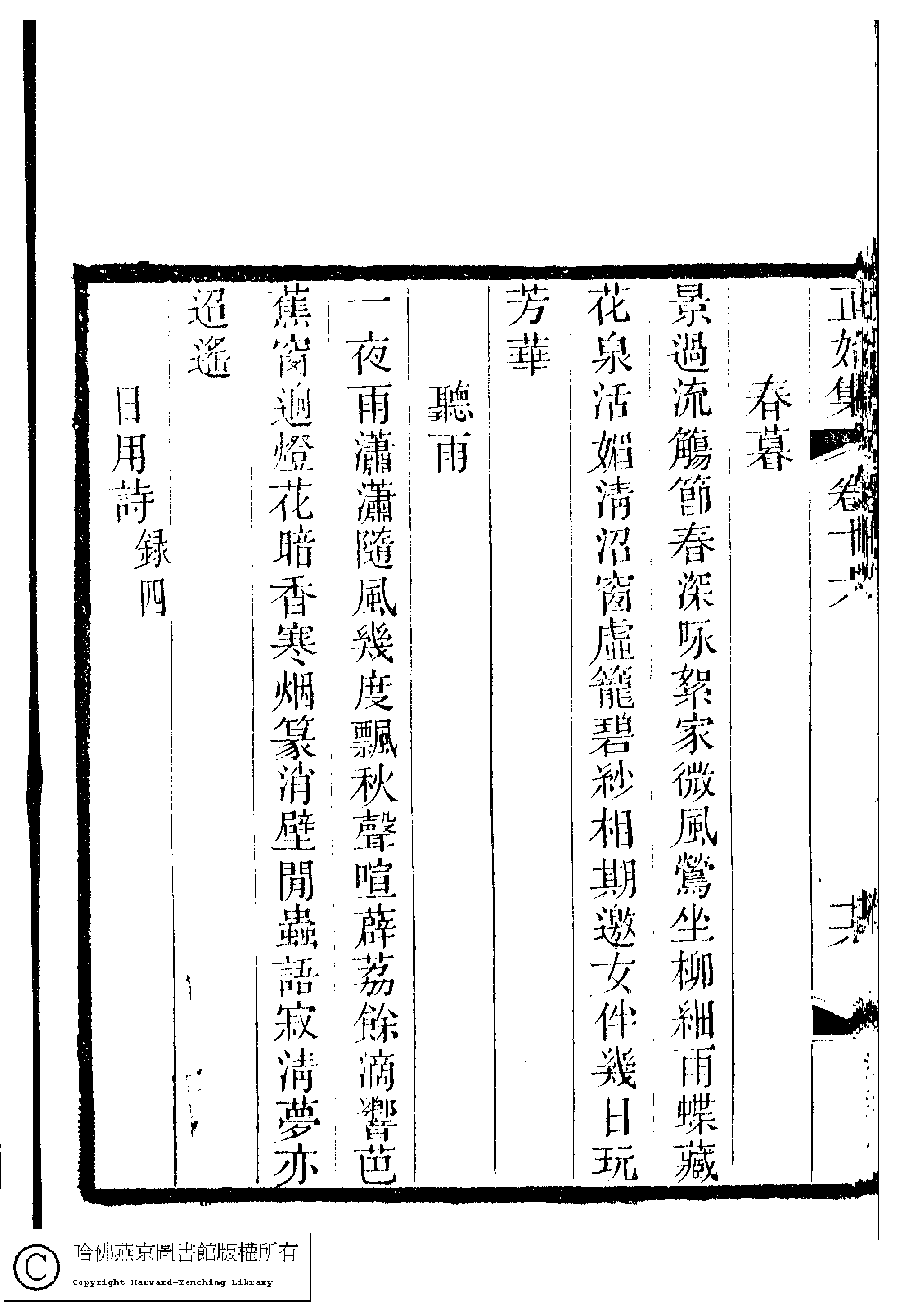 正始集 卷十六
春暮
景過流觴節春深啄絮家微風鶯坐柳細雨蝶藏
花泉活媚清沼窗虛籠碧紗相期邀女伴幾日玩
芳華
聽雨
一夜雨瀟瀟隨風幾度飄秋聲喧薜荔餘滴響芭
蕉窗逈燈花暗香寒烟篆消壁閒蟲語寂清夢亦
迢遙
日用詩録四
哈佛燕京圖書館版權所有
Copyright Harvard-Yenching Library